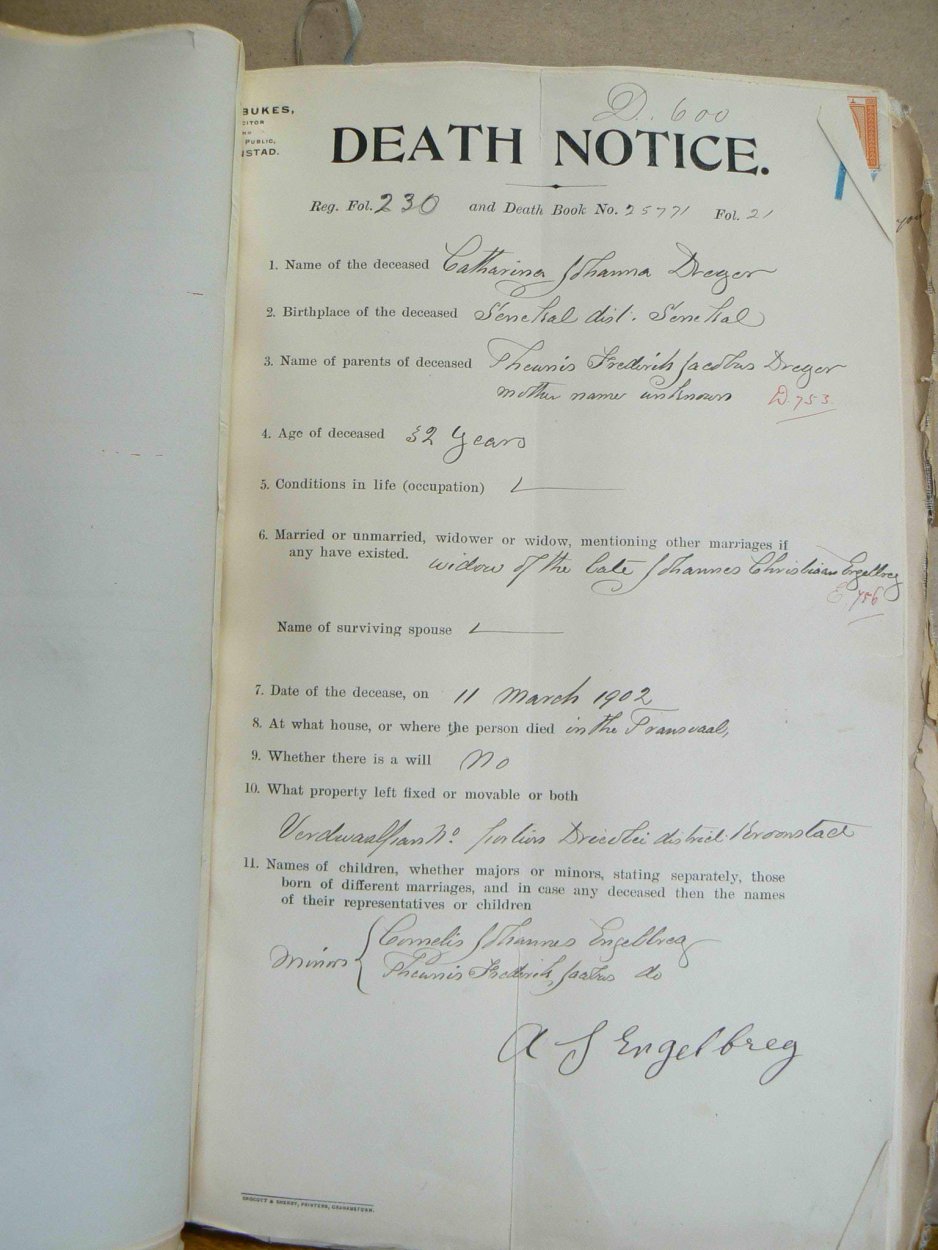 BUKES,
CITOR
PUBLIC,
STAD.
D. 600
DEATH NOTICE.
Reg. Fol. 230 and Death Book No. 25771 Fol. 21
1. Name of the deceased Catharina Johanna Dreyer
2. Birthplace of the deceased Senekal dist. Senekal
3. Name of parents of deceased Theunis Frederik Jacobus Dreyer
mother name unknown D. 753
4. Age of deceased 32 Years
5. Conditions in life (occupation)
6. Married or unmarried, widower or widow, mentioning other marriages if
any have existed. widow of the late Johannes Christiaan Engelbreg
E. 756
Name of surviving spouse
7. Date of the decease, on 11 March 1902
8. At what house, or where the person died in the Transvaal,
9. Whether there is a will No
10. What property left fixed or movable or both
No. district Kroonstad
11. Names of children, whether majors or minors, stating separately, those
born of different marriages, and in case any deceased then the names
of their representatives or children
Minors { Cornelis Johannes Engelbreg
Theunis Frederik Jacobus do
A J Engelbreg
GROCOTT & SHERRY, PRINTERS, GRAHAMSTOWN.